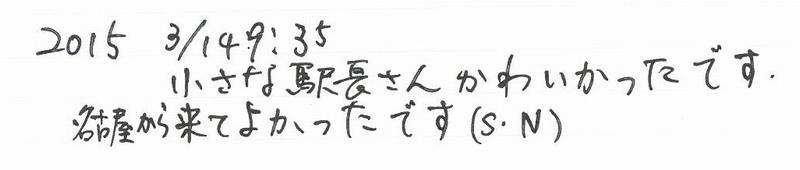 2015 3/14 9:35
小さな駅長さんかわいかったです.
名古屋から来てよかったです(S.N)